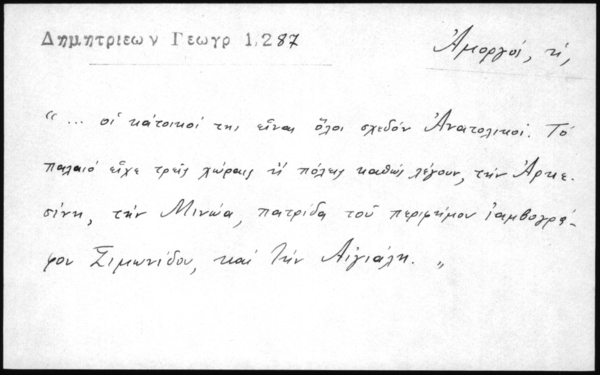 Δημητριεων Γεωγρ 1,287
Ἀμοργός, ἡ,
“ ... οἱ κάτοικοί της εἶναι ὅλοι σχεδὸν Ἀνατολικοί. Τὸ
παλαιὸ εἶχε τρεῖς χώραις ἢ πόλεις καθὼς λέγουν, τὴν Ἀρκε-
σίνη, τὴν Μινώα, πατρίδα τοῦ περιφήμου ἰαμβογρά-
φου Σιμωνίδου, καὶ τὴν Αἰγιάλη. „